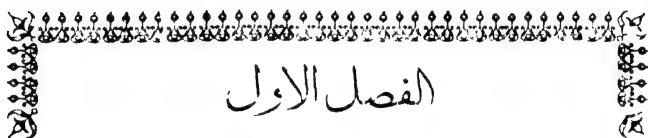 الفصل الاول